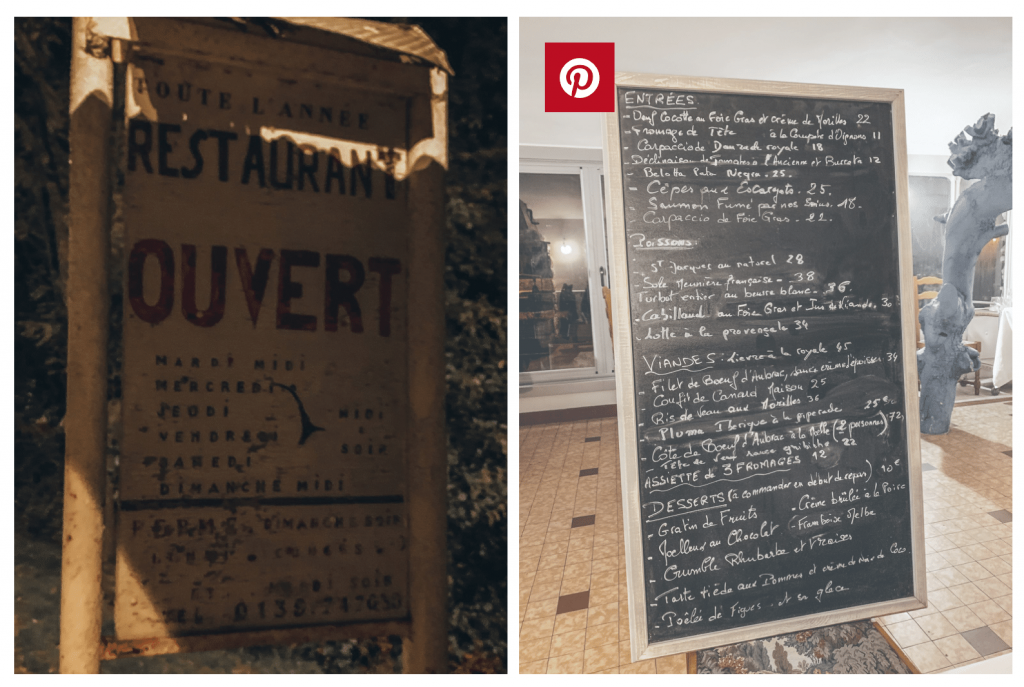 TOUTE L'ANNÉE
RESTAURANT
OUVERT
MARDI MIDI
MERCREDI
JEUDI MIDI
VENDREDI SOIR
SAMEDI
DIMANCHE MIDI
FERMÉ DIMANCHE SOIR
ET MARDI SOIR
TEL
ENTRÉES
- Oeuf Cocotte au Foie Gras et crème de Morilles 22
- Fromage de Tête à la Compote d'Oignons 11
- Carpaccio de royale 18
- Déclinaison de Tomates à l'Ancienne et Burrata 12
- Belotta Pata Negra. 25.
- Cèpes aux Escargots. 25.
- Saumon Fumé par nos Soins. 18.
- Carpaccio de Foie Gras. 22.
Poissons:
- St Jacques au naturel 28
- Sole Meunière française - 38
Turbot entier au beurre blanc - 36.
- Cabillaud au Foie Gras et Jus de Viande. 30
- Lotte à la provençale 34
VIANDES: Lièvre à la royale 45
- Filet de Boeuf d'Aubrac, sauce crème d'époisses. 34
- Confit de Canard Maison 25
- Ris de Veau aux Morilles 36
- Pluma Iberique à la piperade 25€
- Côte de Boeuf d'Aubrac à la Moelle (2 personnes) 72
- Tête de Veau sauce gribiche 22
ASSIETTE de 3 FROMAGES 12
DESSERTS (à commander en début de repas) 10€
- Gratin de Fruits - Crème brûlée à la Poire
- Moelleux au Chocolat - Framboise Melba
- Crumble Rhubarbe et Fraises
- Tarte tiède aux Pommes et crème de Noix de Coco
- Poêlée de Figues et sa glace